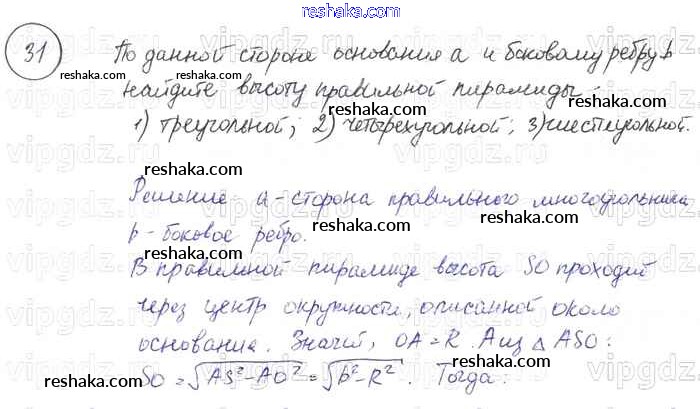 reshaka.com
31 По данной стороне основания a и боковому ребру b
reshaka.com reshaka.com
найдите высоту правильной пирамиды:
reshaka.com reshaka.com
1) треугольной; 2) четырехугольной; 3) шестиугольной.
reshaka.com
Решение a - сторона правильного многоугольника
reshaka.com reshaka.com
b - боковое ребро.
reshaka.com
В правильной пирамиде высота SO проходит
reshaka.com
через центр окружности, описанной около
reshaka.com
основания. Значит, OA = R. А из △ ASO:
reshaka.com reshaka.com
SO = √AS² - AO² = √b² - R². Тогда:
reshaka.com